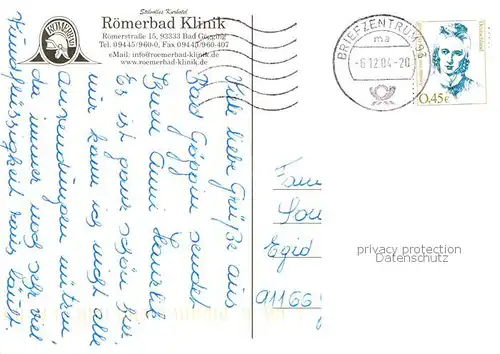 Stilvolles Kurhotel
Römerbad Klinik
Römerstraße 15, 93333 Bad Gögging
Tel. 09445/960-0, Fax 09445/960-407
eMail: info@roemerbad-klinik.de
www.roemerbad-klinik.de
RÖMERBAD
BRIEFZENTRUM 93
ma
-6.12.04-20
Deutschland
0,45€
Viele liebe Grüße aus
Bad Gögging sendet
Euch Anni
Es ist ganz schön hier
nur kann ich nicht alle
Anwendungen nützen
da immer noch sehr viel
Wundflüssigkeit raus läuft.
Fam
Egid
91166
privacy protection
Datenschutz